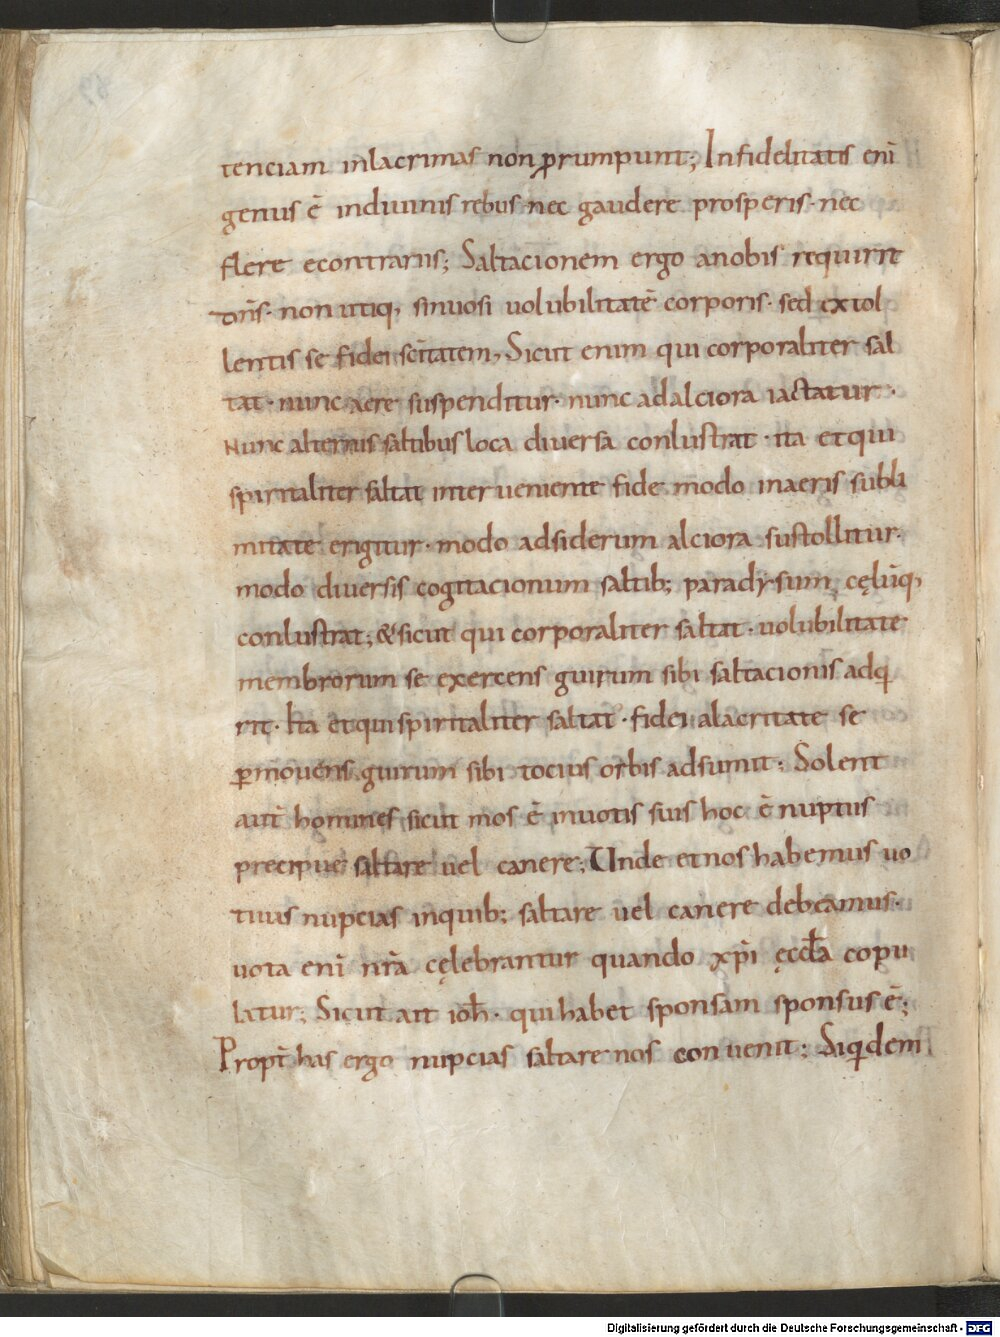 tenciam inlacrimas non ꝓrumpunt; Infidelitatis eni̅
genus e̅ indiuinis rebus nec gaudere prosperis · nec
flere econtrariis; Saltacionem ergo anobis requirit
dn̅s · non utiq, sinuosi uolubilitate̅ corporis · sed extol
lentis se fidei sc̅itatem, Sicut enim qui corporaliter sal
tat · nunc aere suspenditur · nunc adalciora iactatur ·
Nunc alternis saltibus loca diuersa conlustrat · ita et qui
spiritaliter saltat interueniente fide modo inaeris subli
mitate erigitur · modo adsiderum alciora sustollitur ·
modo diuersis cogitacionum saltib; paradysum, cęlu̅q,
conlustrat; & sicut qui corporaliter saltat · uolubilitate
membrorum se exercens guirum sibi saltacionis adq
rit · Ita et qui spiritaliter saltat · fidei alacritate se
ꝑmouens guirum sibi tocius orbis adsumit; Solent
aut̅ homines sicut mos e̅ inuotis suis hoc e̅ nuptiis
precipue saltare uel canere; Unde et nos habemus uo
tiuas nupcias inquib; saltare uel canere debeamus ·
uota eni̅ nr̅a cęlebrantur quando xp̅i ęccl̅a copu
latur; Sicut ait ioh̅ · qui habet sponsam sponsus e̅;
Propt̅ has ergo nupcias saltare nos conuenit; Siqidem
Digitalisierung gefördert durch die Deutsche Forschungsgemeinschaft - DFG